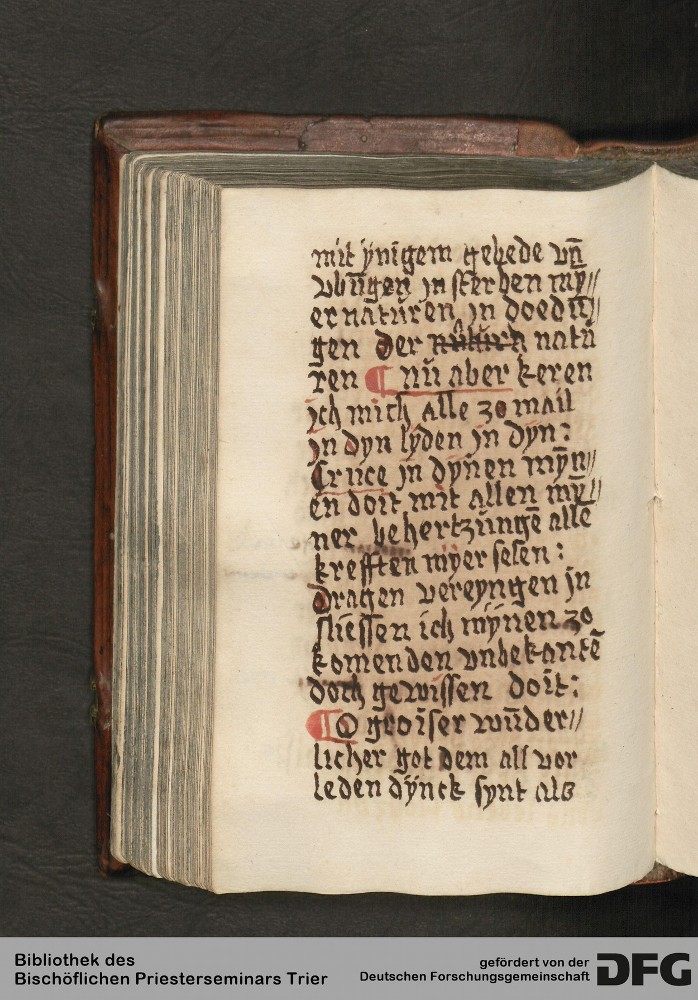 mit ÿnigem gebede vn̄
vbūgen jn sterben mȳ//
er naturen jn doedū//
gen der natu
ren ¶ nū aber keren
ich mich alle zo mail
jn dyn lyden jn dyn:
Cruce jn dÿnen mȳn//
en doit mit allen mȳ//
ner behertzunge᷎ alle
krefften myer selen:
dragen vereyngen jn
sliessen ich mÿnen zo
komenden vnbekantē
doch gewissen doit:
¶ O groiser wūder//
licher got dem all vor
leden dÿnck synt als
Bibliothek des
Bischöflichen Priesterseminars Trier
gefördert von der
Deutschen Forschungsgemeinschaft
DFG